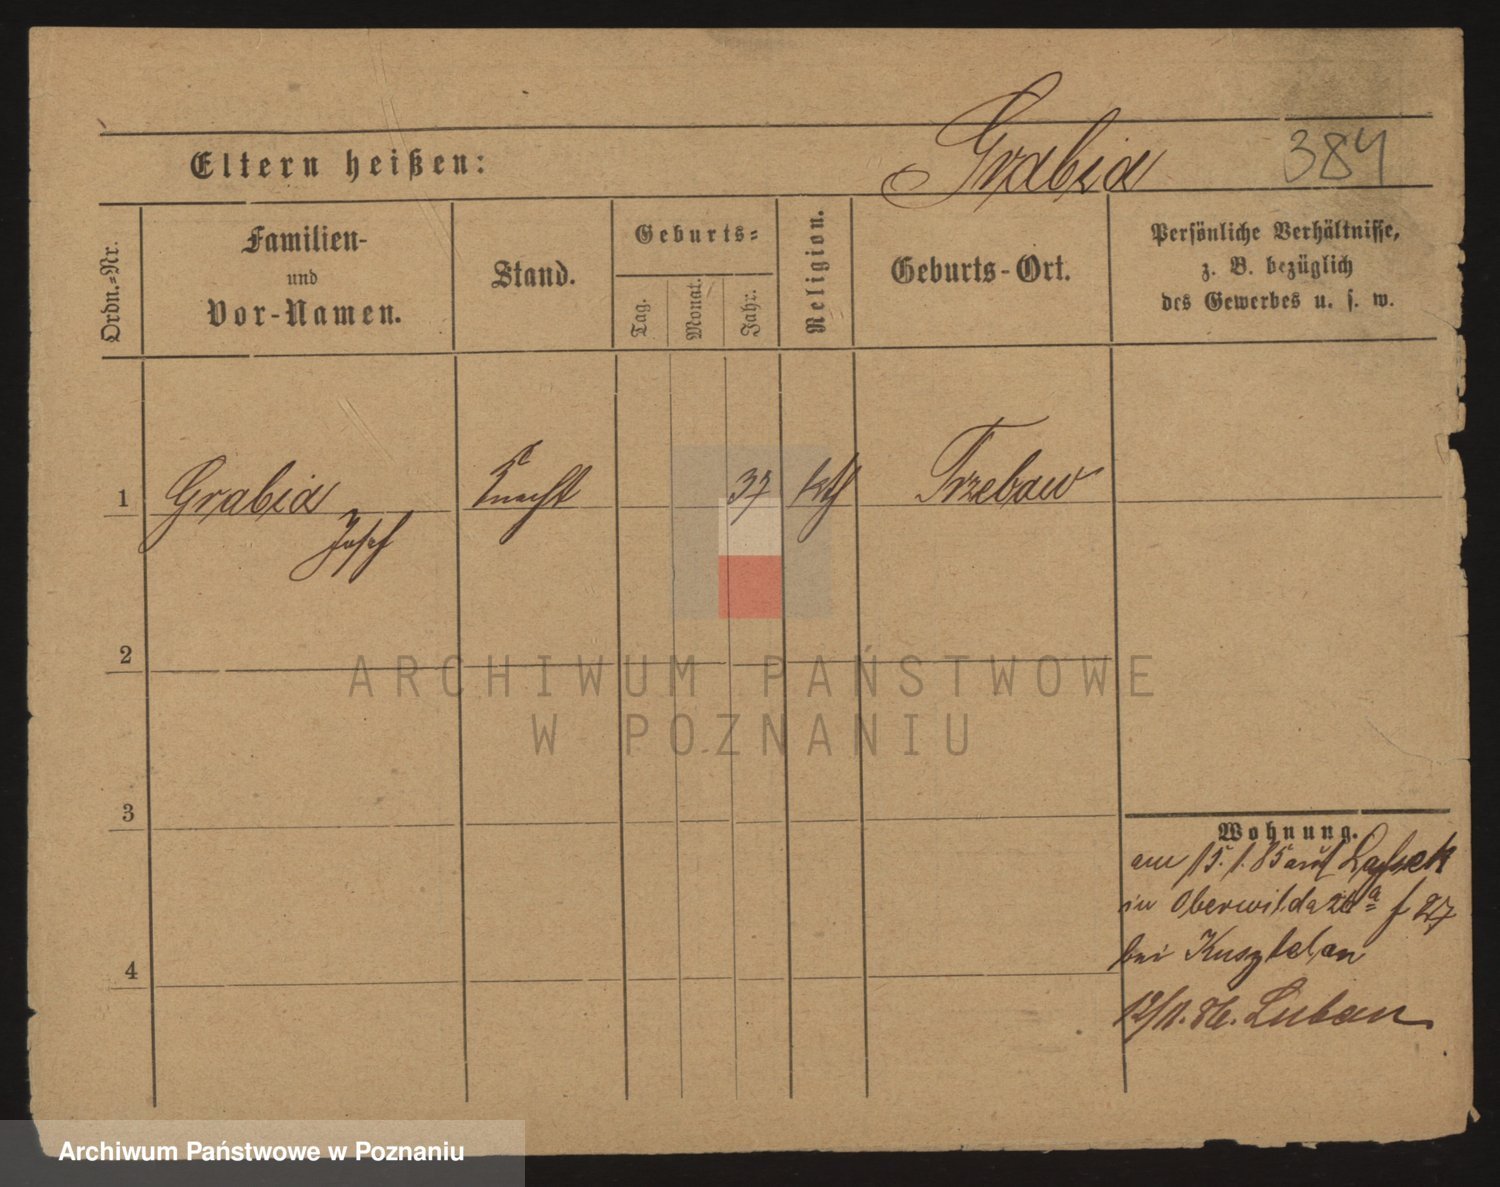 Grabia
384
Eltern heißen:
Ordn.-Nr.
Familien-
und
Vor-Namen.
Stand.
Geburts-
Tag.
Monat.
Jahr.
Religion.
Geburts-Ort.
Persönliche Verhältnisse,
z. B. bezüglich
des Gewerbes u. s. w.
1
Grabia
Josef
Knecht
37
kth
Trzebaw
2
ARCHIWUM PAŃSTWOWE
W POZNANIU
3
4
Wohnung.
am 15.1.85 auf
in Oberwilda 26a f 27
bei
12/11.86. Luban
Archiwum Państwowe w Poznaniu